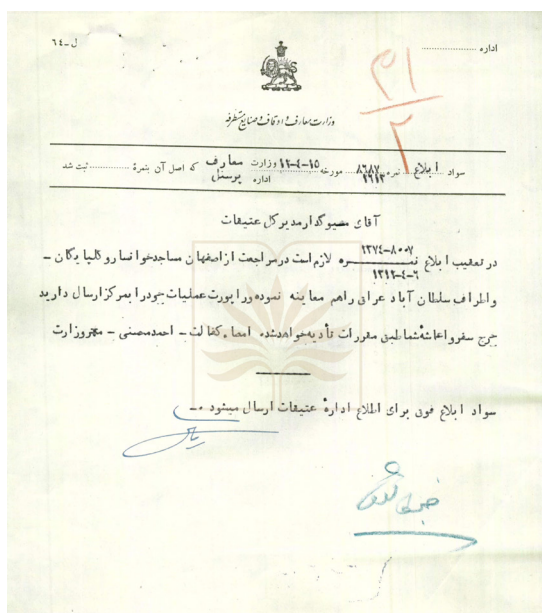 ل-٦٤
اداره
۳۱
۲
وزارت معارف و اوقاف و صنایع مستظرفه
سواد ابلاغ نمره ۸٦۸۷ ۱٦۱۳ مورخه ۱۵-٤-۱۲ وزارت معارف اداره پرسنل که اصل آن بنمرهٔ ثبت شد
آقای مسیو گدار مدیر کل عتیقات
در تعقیب ابلاغ نمــره ۸۰۰۷-۱۲۷٤
۱۳۱۲-٤-٦ لازم است در مراجعت از اصفهان مساجد خوانسار و گلپایگان -
و اطراف سلطان آباد عراق راهم معاینه نموده و راپورت عملیات خود را بمرکز ارسال دارید
خرج سفر و اعاشهٔ شما طبق مقررات تأدیه خواهد شد امضاء کفالت - احمد محسنی -
سواد ابلاغ فوق برای اطلاع ادارهٔ عتیقات ارسال میشود